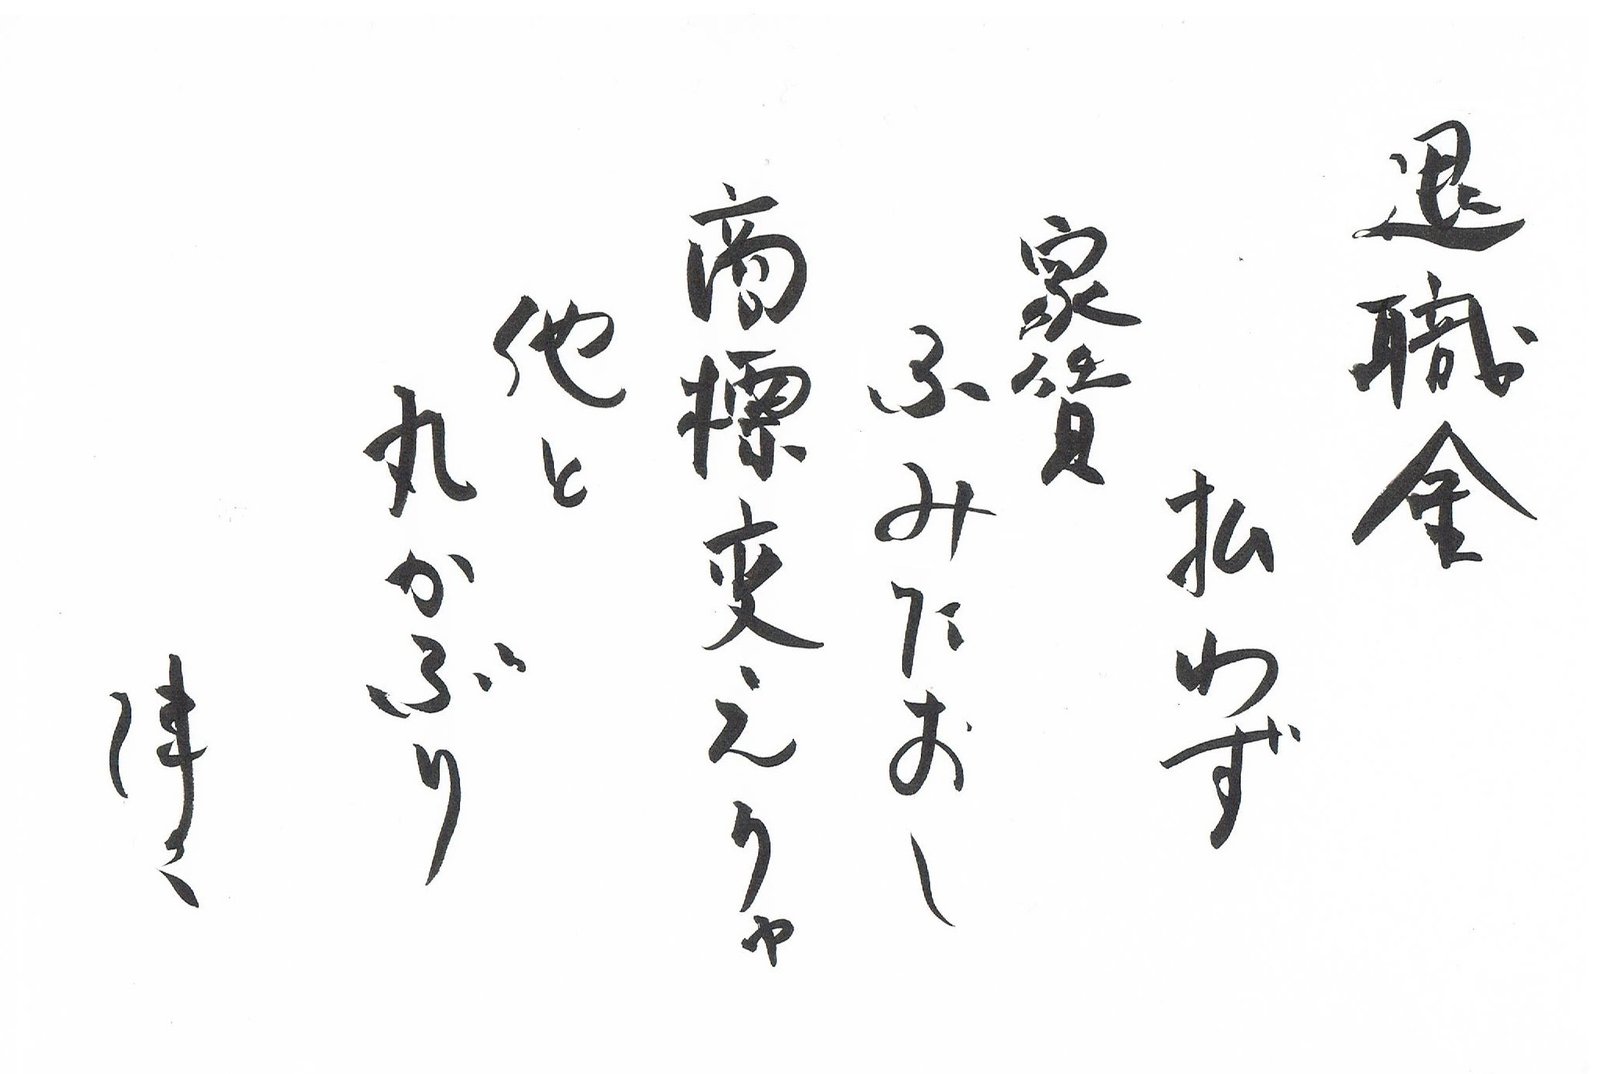 退職金
払わず
家賃
ふみたおし
商標変えりゃ
他と
丸かぶり